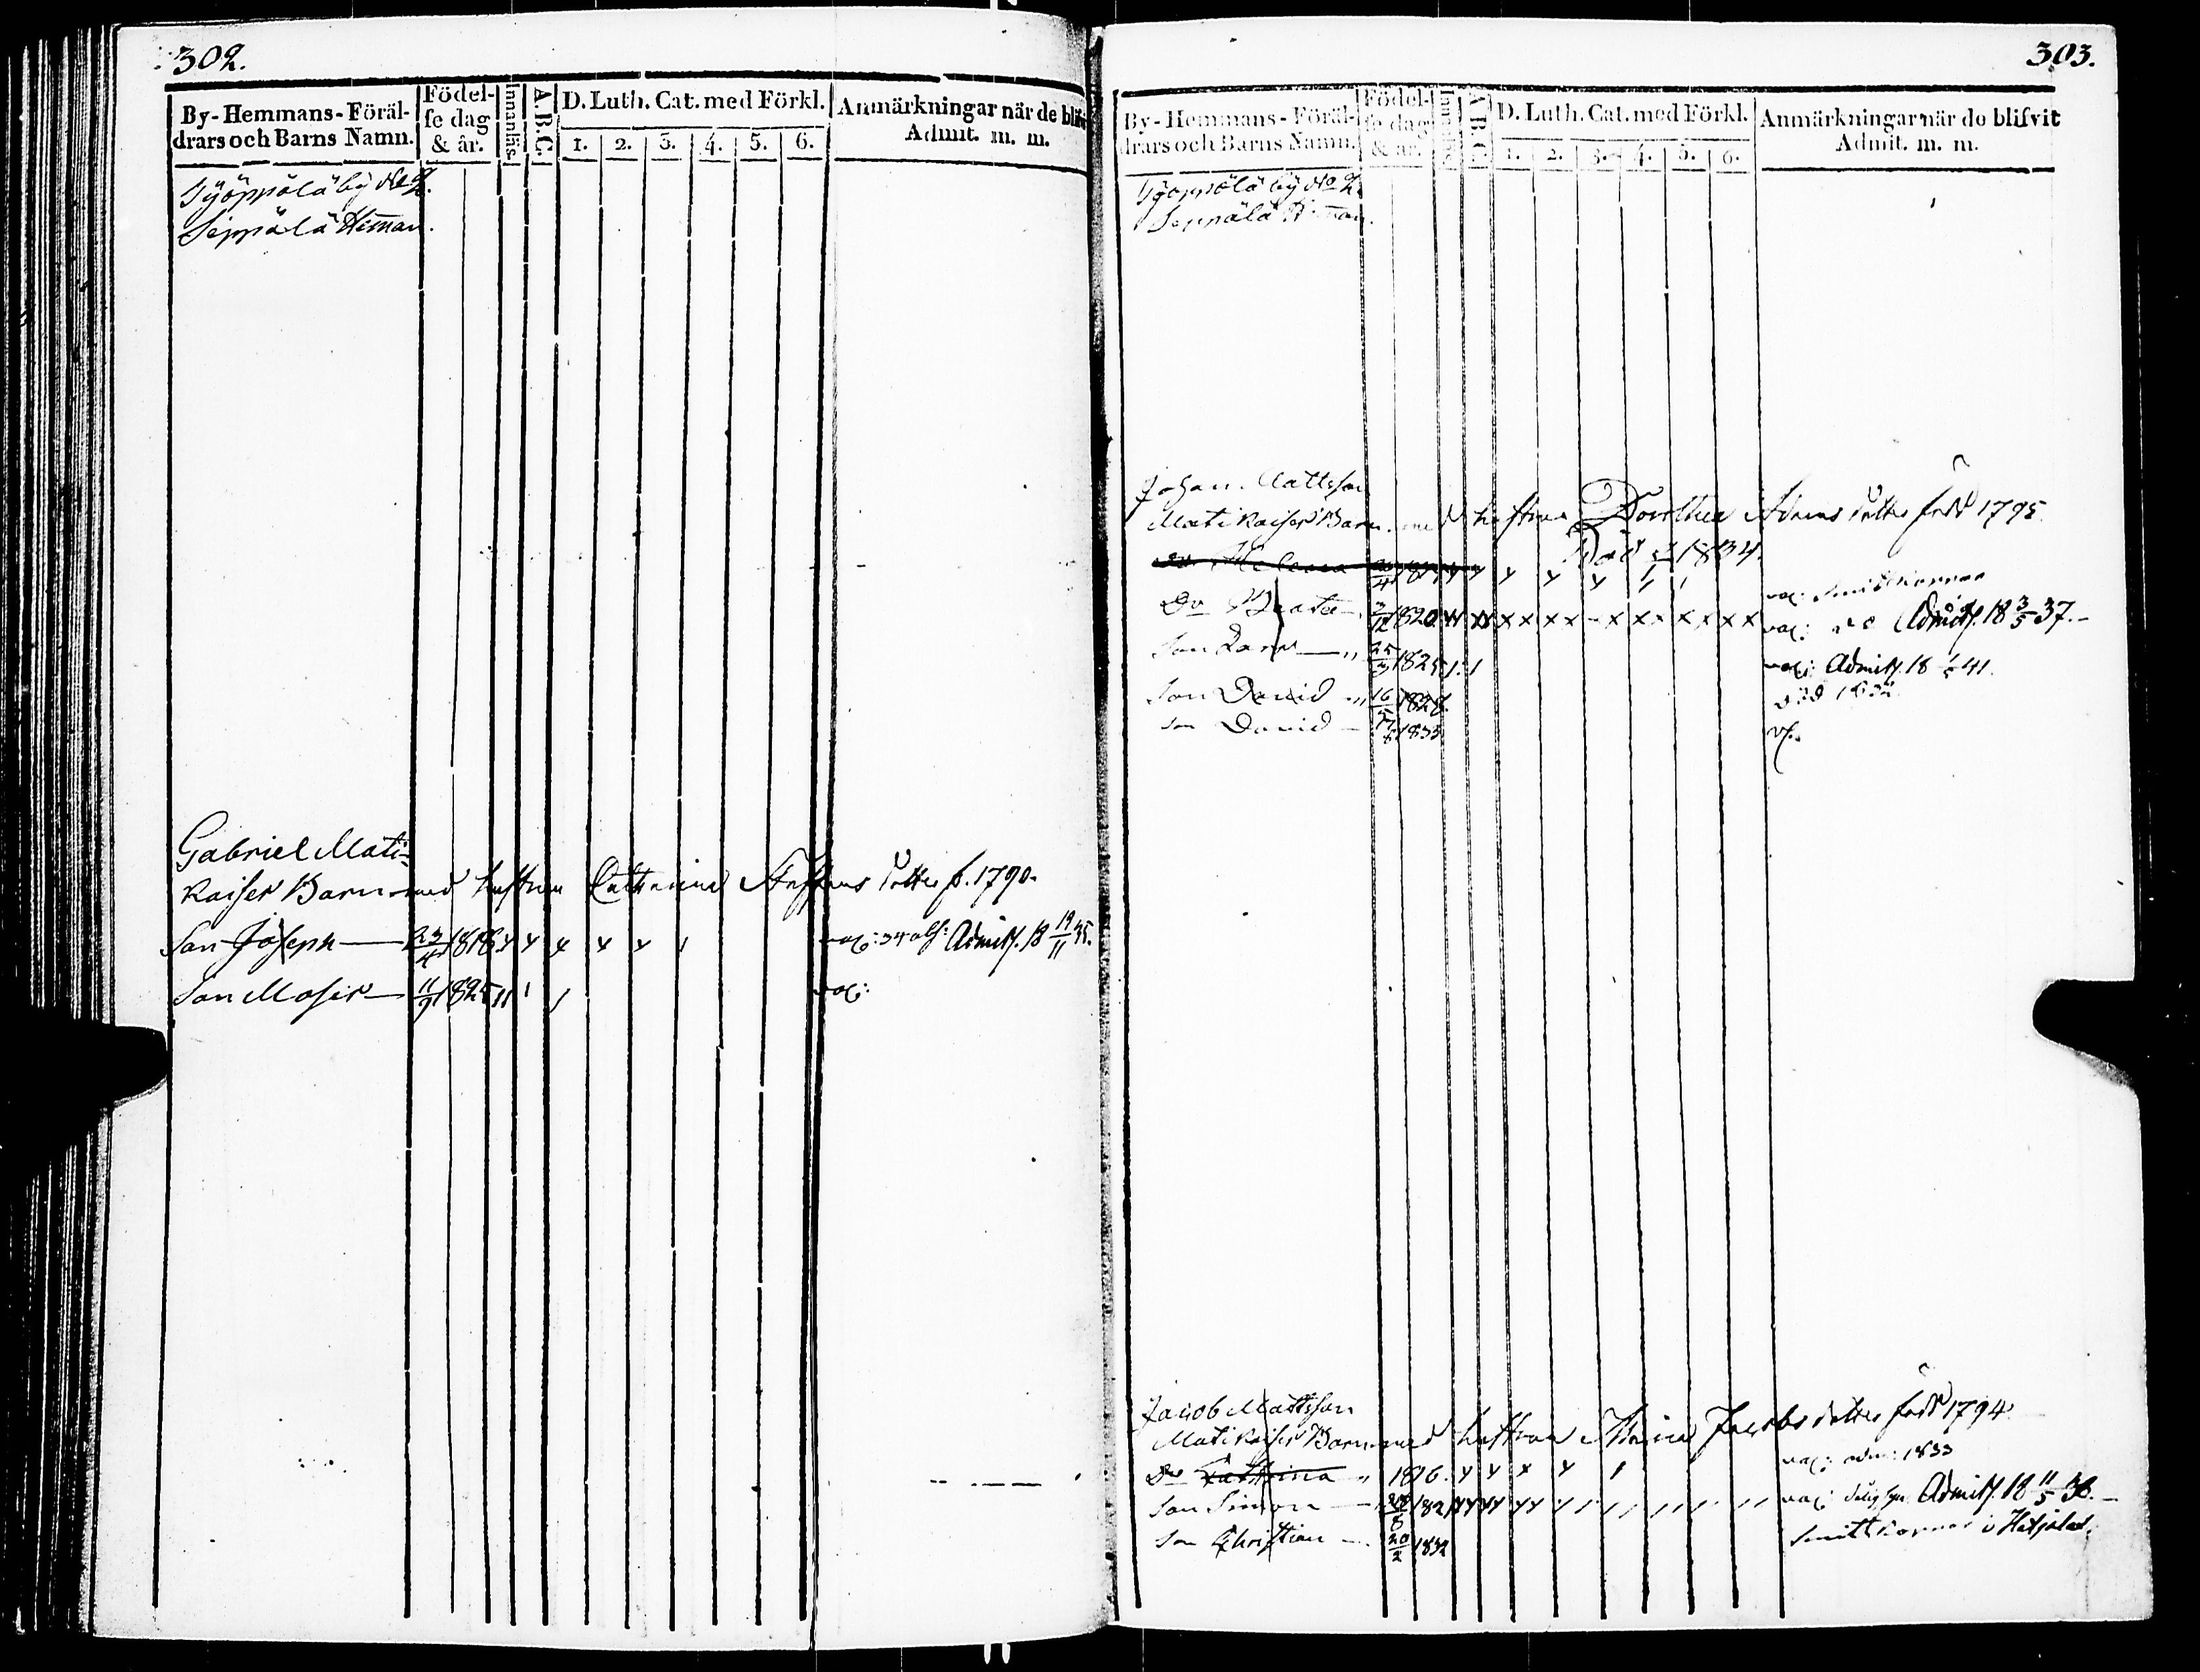 302.
By-Hemmans-Föräl-
drars och Barns Namn.
Födel-
se dag
& år.
Innanläs.
A.B.C.
D. Luth. Cat. med Förkl.
1. 2. 3. 4. 5. 6.
Anmärkningar när de blifv
Admit. m. m.
Työppölä by No 2.
Seppälä Heman.
Gabriel Mati-
kaises Barn med hustrun Catharina Staffans dotter f. 1790.
Son Joseph 23/4 1818 x x x x x vac: Admitt. 18 19/11 35.
Son Moses 11/9 1825 vac:
303.
By-Hemmans-Föräl-
drars och Barns Namn.
Födel-
se dag
& år.
Innanläs.
A.B.C.
D. Luth. Cat. med Förkl.
1. 2. 3. 4. 5. 6.
Anmärkningar när de blifvit
Admit. m. m.
Työppölä by No 2.
Seppälä Heman.
Johan Mattsson
Matikaises Barn med hustrun Dorothea Adams dotter född 1795.
Död 1834.
Dr Helena vac: Smittkoppor
Dr Beata 3/12 1820 x x x x x x - x x x x x x x vac: Admitt. 18 3/5 37.-
Son 25/3 1825 vac: Admitt. 18 41.
Son David 16/5 1828 död 1832.
Son David 1833 v.
Jacob Mattsson
Matikaises Barn med hustrun Maria Jacobs dotter född 1794.
Dr Cathrina 1816. x x x x vac: adm: 1833
Son Simon 1821 vac: Admitt. 18 11/5 38.-
Son Christian 20/2 1832 Smittkoppor i